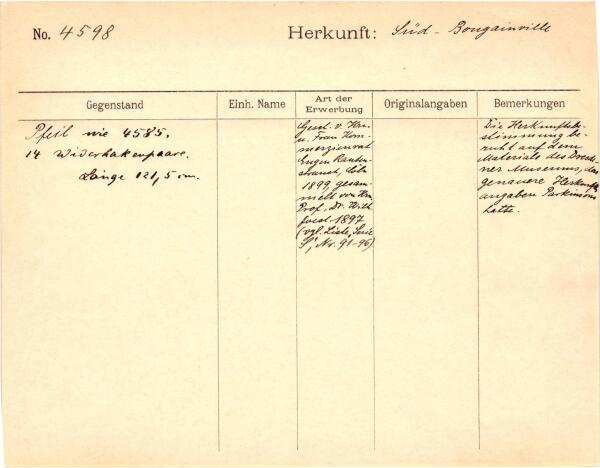 No. 4598 Herkunft: Süd-Bougainville
Gegenstand Einh. Name Art der Erwerbung Originalangaben Bemerkungen
Pfeil wie 4585.
14 Widerhakenpaare.
Länge 121,5 cm.
Gest. v. Hrn.
u. Frau Kom-
merzienrat
Eugen Rauten-
strauch, Cöln
1899, gesam-
melt von Hrn.
Prof. Dr. Wilh.
Joest 1897
(vgl. Liste, Serie
S, Nr. 91-96)
Die Herkunftsbe-
stimmung be-
ruht auf dem
Materiale des Dresde-
ner Museums, das
genauere Herkunfts-
angaben Parkinsons
hatte.